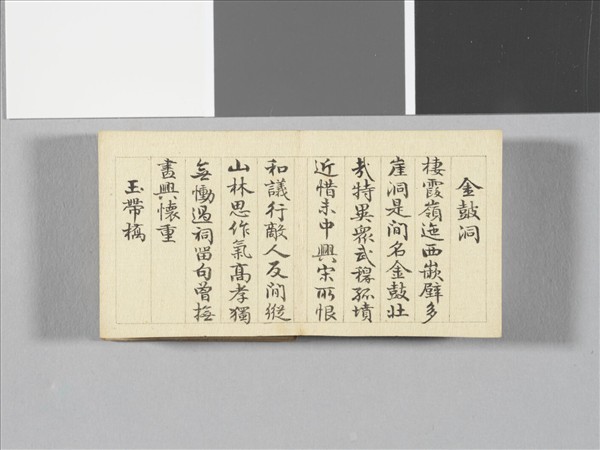 金鼓洞
棲霞嶺迤西嵌壁多
崖洞是间名金鼓壮
哉特異眾武穆孤墳
近惜未中興宋所恨
和議行敵人反间縱
山林思作氣高孝獨
無慟過祠留句曾
書興懷重
玉帶橋